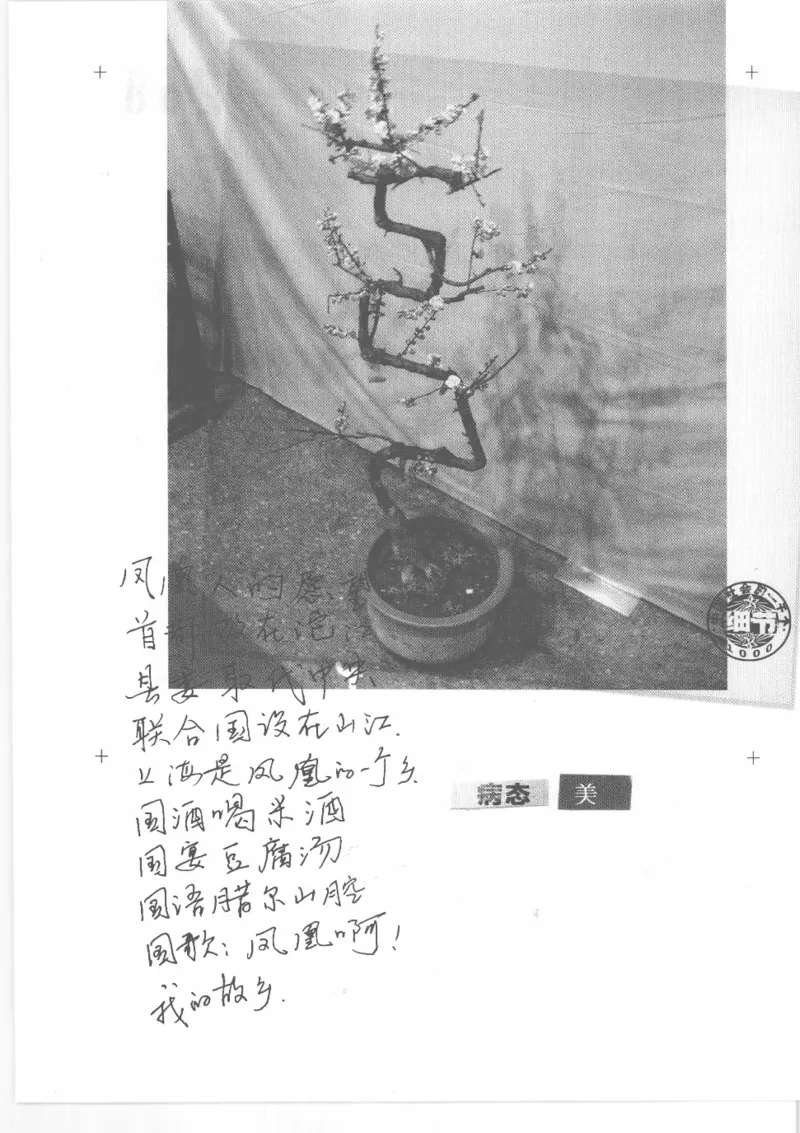 凤凰人的愿望
首都放在沱江
县委取代中央
联合国设在山江.
上海是凤凰的一个乡
国酒喝米酒
国宴豆腐汤
国语腊尔山腔
国歌:凤凰啊!
我的故乡.
病态 美
细节
1000